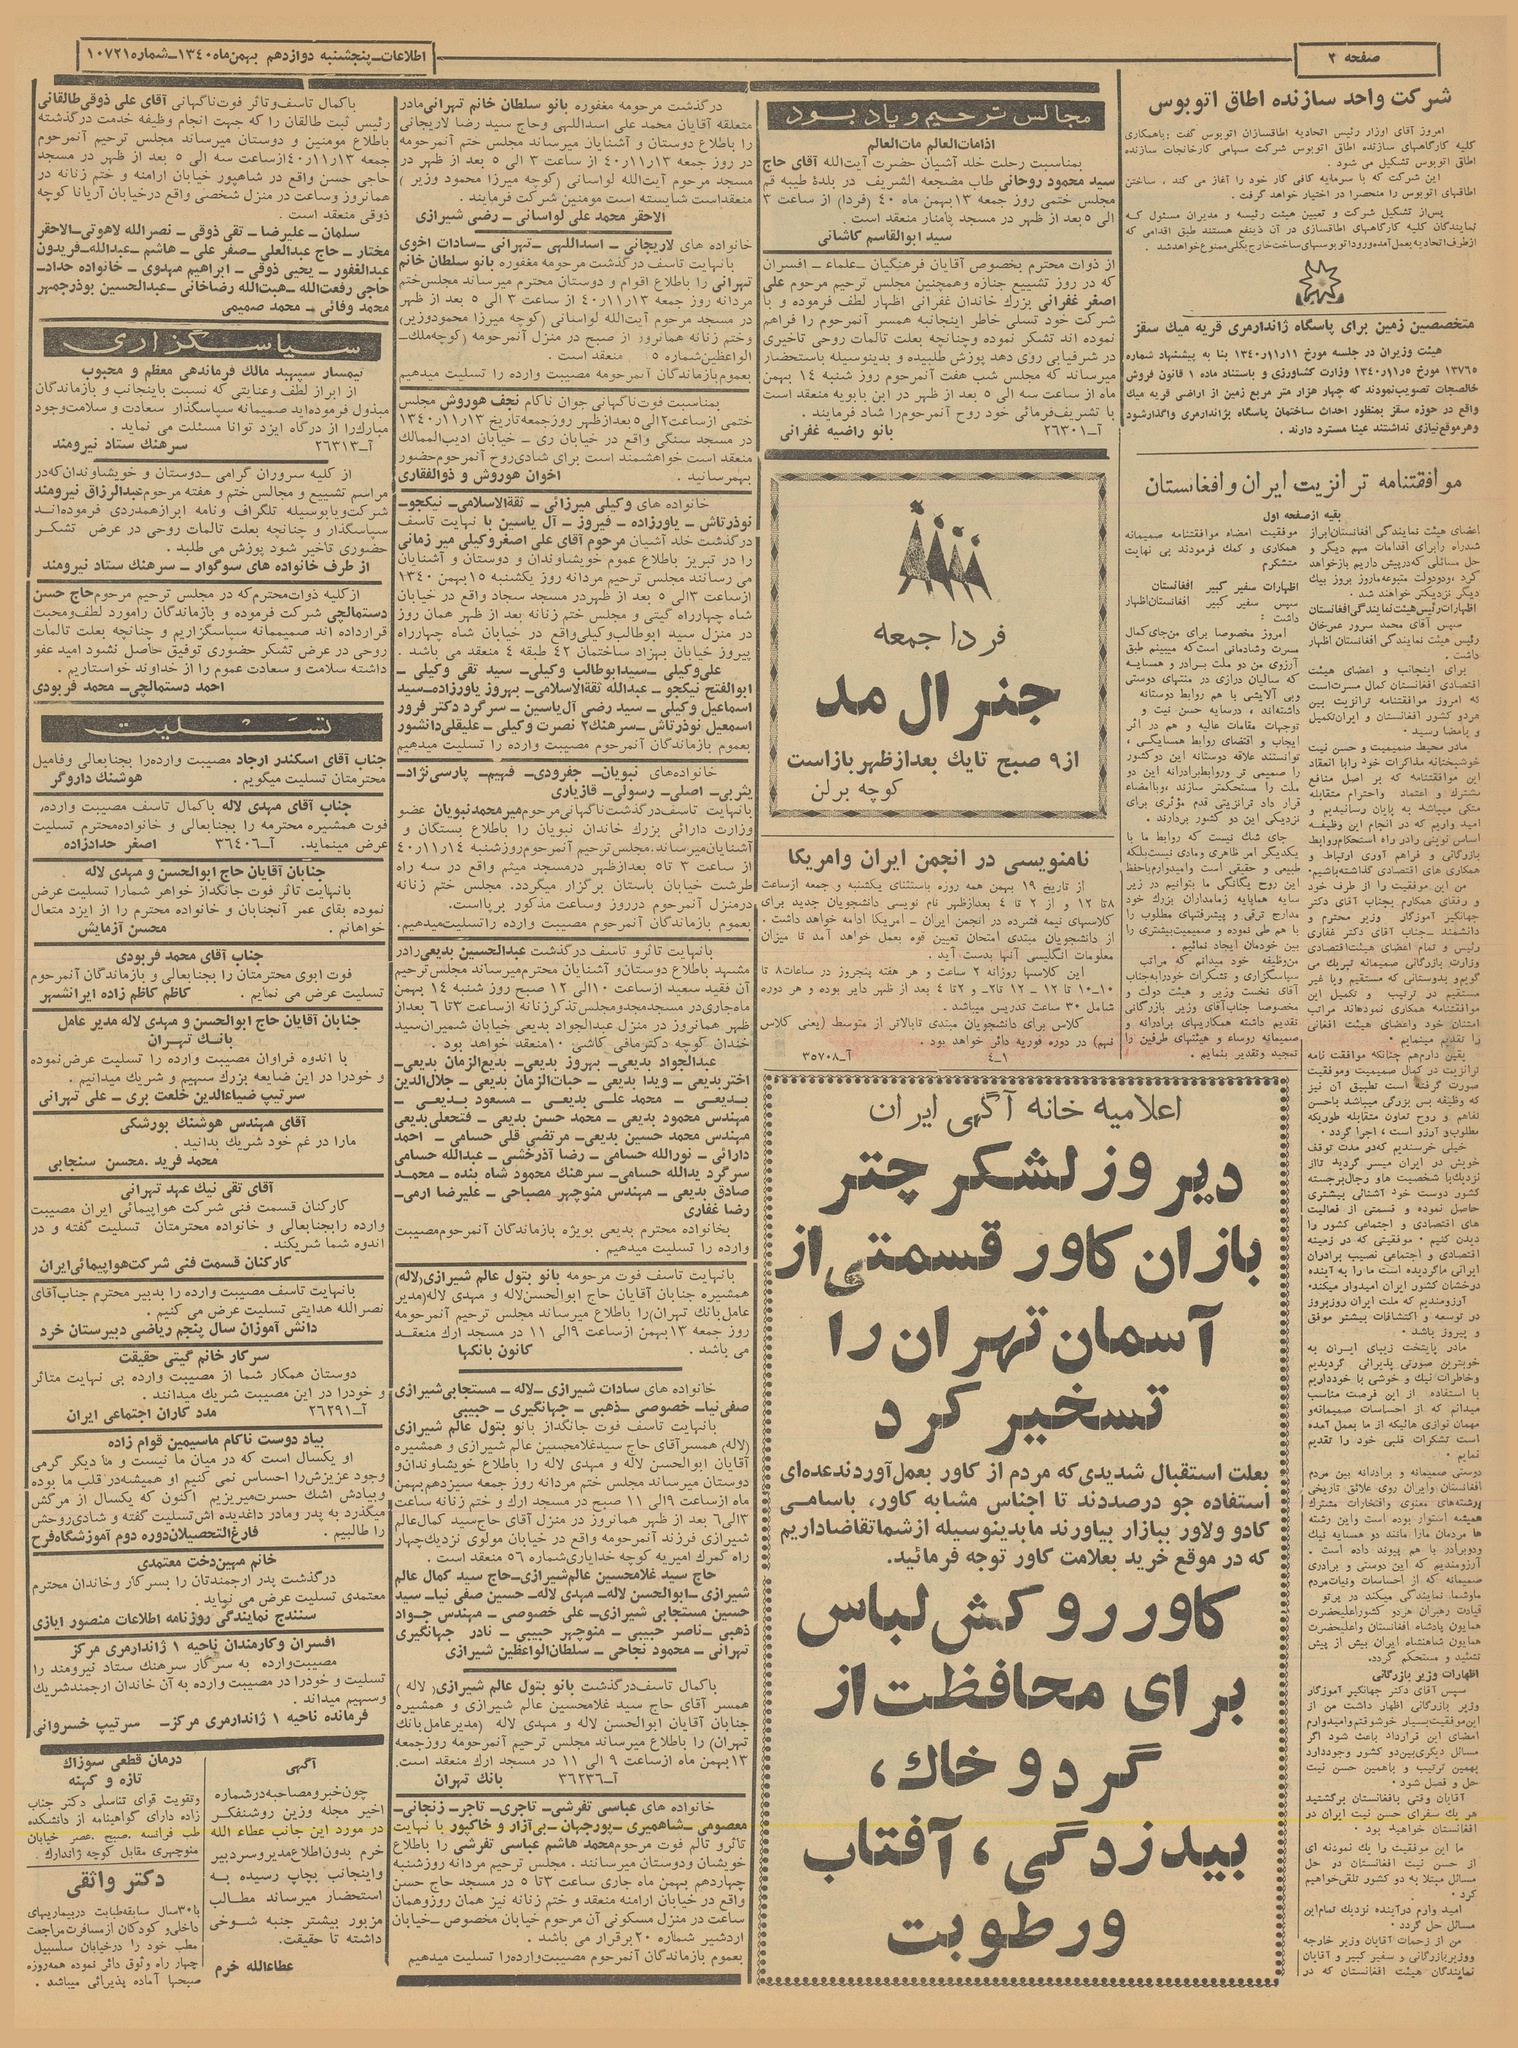 صفحه ۲
اطلاعات ـ پنجشنبه دوازدهم بهمن ماه ۱۳٤۰ ـ شماره ۱۰۷۲۱
شرکت واحد سازنده اطاق اتوبوس
امروز آقای اوزار رئیس اتحادیه اطاقسازان اتوبوس گفت : باهمکاری
کلیه کارگاههای سازنده اطاق اتوبوس شرکت سهامی کارخانجات سازنده
اطاق اتوبوس تشکیل می شود .
این شرکت که با سرمایه کافی کار خود را آغاز می کند ، ساختن
اطاقهای اتوبوس را منحصرا در اختیار خواهد گرفت .
پس از تشکیل شرکت و تعیین هیئت رئیسه و مدیران مسئول که
نمایندگان کلیه کارگاههای اطاقسازی در آن ذینفع هستند طبق اقدامی که
از طرف اتحادیه بعمل آمده ورود اتوبوسهای ساخت خارج بکلی ممنوع خواهد شد .
متخصصین زمین برای پاسگاه ژاندارمری قریه میك سقز
هیئت وزیران در جلسه مورخ ۱۳٤۰ر۱۱ر۱۱ بنا به پیشنهاد شماره
۱۳۷٦۵ مورخ ۱۳٤۰ر۱۱ر۵ وزارت کشاورزی و باستناد ماده ۱ قانون فروش
خالصجات تصویب نمودند که چهار هزار متر مربع زمین از اراضی قریه میك
واقع در حوزه سقز بمنظور احداث ساختمان پاسگاه بژاندارمری واگذار شود
وهر موقع نیازی نداشتند عینا مسترد دارند .
موافقتنامه ترانزیت ایران و افغانستان
بقیه از صفحه اول
اعضای هیئت نمایندگی افغانستان ابراز
شد راه را برای اقدامات مهم دیگر و
حل مسائلی که در پیش داریم باز خواهد
کرد ، ودودولت متبوعه ما روز بروز بیك
دیگر نزدیکتر خواهند شد .
اظهارات رئیس هیئت نمایندگی افغانستان
سپس آقای محمد سرور عمر خان
رئیس هیئت نمایندگی افغانستان اظهار
داشت .
برای اینجانب و اعضای هیئت
اقتصادی افغانستان کمال مسرت است
که امروز موافقتنامه ترانزیت بین
هر دو کشور افغانستان و ایران تکمیل
و بامضا رسید .
مادر محیط صمیمیت و حسن نیت
خوشبختانه مذاکرات خود را با انعقاد
این موافقتنامه که بر اصل منافع
مشترك و اعتماد واحترام متقابله
متکی میباشد به پایان رسانیدیم و
امید واریم که در انجام این وظیفه
اساس نوینی رادر راه استحکام روابط
بازرگانی و فراهم آوری ارتباط و
همکاری های اقتصادی گذاشته باشیم .
من این موفقیت را از طرف خود
و رفقای همکارم بجناب آقای دکتر
جهانگیر آموزگار وزیر محترم و
دانشمند ـ جناب آقای دکتر غفاری
رئیس و تمام اعضای هیئت اقتصادی
وزارت بازرگانی صمیمانه تبریك می
گویم و بدوستانی که مستقیم و یا غیر
مستقیم در ترتیب و تکمیل این
موافقتنامه همکاری نموده اند مراتب
امتنان خود واعضای هیئت افغانی
را تقدیم مینمایم .
یقین دارم هم چنانکه موافقت نامه
ترانزیت در کمال صمیمیت وموفقیت
صورت گرفته است تطبیق آن نیز
که وظیفه بس بزرگی میباشد باحسن
تفاهم و روح تعاون متقابله طوریکه
مطلوب و آرزو است ، اجرا گردد .
خیلی خرسندیم که در مدت توقف
خویش در ایران میسر گردید تا از
نزدیك با شخصیت ها و رجال برجسته
کشور دوست خود آشنائی بیشتری
حاصل نموده و قسمتی از فعالیت
های اقتصادی و اجتماعی کشور را
دیدن کنیم . موفقیتی که در زمینه
اقتصادی و اجتماعی نصیب برادران
ایرانی ما گردیده است ما را به آینده
درخشان کشور ایران امیدوار میکند .
آرزومندیم که ملت ایران روزبروز
در توسعه و اکتشافات بیشتر موفق
و پیروز باشد .
مادر پایتخت زیبای ایران به
خوبترین صورتی پذیرائی گردیدیم
وخاطرات نیك و خوشی با خود داریم
با استفاده از این فرصت مناسب
میدانم که از احساسات صمیمانه و
مهمان نوازی هائیکه از ما بعمل آمده
است تشکرات قلبی خود را تقدیم
نمایم .
دوستی صمیمانه و برادرانه بین مردم
افغانستان وایران روی علائق تاریخی
رشته های معنوی و افتخارات مشترك
همیشه استوار بوده است واین رشته
ها مردمان مارا مانند دو همسایه نیك
ودوبرادر با هم پیوند داده است .
آرزومندیم که این دوستی و برادری
صمیمانه که از احساسات ونیات مردم
ماوشما نمایندگی میکند در پرتو
قیادت رهبران هر دو کشور اعلیحضرت
همایون پادشاه افغانستان و اعلیحضرت
همایون شاهنشاه ایران بیش از پیش
تشئید و مستحکم گردد.
اظهارات وزیر بازرگانی
سپس آقای دکتر جهانگیر آموزگار
وزیر بازرگانی اظهار داشت من از
این موفقیت بسیار خوشوقتم و امیدوارم
امضای این قرارداد باعث شود اگر
مسائل دیگری بین دو کشور وجود دارد
بهمین ترتیب و باهمین حسن نیت
حل و فصل شود .
آقایان وقتی بافغانستان برگشتید
هر یك سفرای حسن نیت ایران در
افغانستان خواهید بود .
ما این موفقیت را یك نمونه ای
از حسن نیت افغانستان در حل
مسائل مبتلا به دو کشور تلقی خواهیم
کرد .
امید وارم در آینده نزدیك تمام این
مسائل حل گردد .
من از زحمات آقایان وزیر خارجه
ووزیر بازرگانی و سفیر کبیر و آقایان
نمایندگان هیئت افغانستان که در
موفقیت امضاء موافقتنامه صمیمانه
همکاری و کمك فرمودند بی نهایت
متشکرم
اظهارات سفیر کبیر افغانستان
سپس سفیر کبیر افغانستان اظهار
داشت :
امروز مخصوصا برای من جای کمال
مسرت وشادمانی است که میبینم طبق
آرزوی من دو ملت برادر و همسایه
که سالیان درازی در منتهای دوستی
وبی آلایشی با هم روابط دوستانه
داشته اند ، درسایه حسن نیت و
توجهات مقامات عالیه و هم در اثر
ایجاب و اقتضای روابط همسایگی ،
توانستند علاقه دوستانه این دو کشور
را صمیمی تر وروابط برادرانه این دو
ملت را مستحکمتر سازند ، وبا امضاء
قرار داد ترانزیتی قدم مؤثری برای
نزدیکی این دو کشور بردارند .
جای شك نیست که روابط ما با
یکدیگر امر ظاهری ومادی نیست بلکه
طبیعی و حقیقی است وامیدوارم باحفظ
این روح یگانگی ما بتوانیم در زیر
سایه همایه زمامداران بزرگ خود
مدارج ترقی و پیشرفتهای مطلوب را
با هم طی نموده و صمیمیت بیشتری را
بین خودمان ایجاد نمائیم .
من وظیفه خود میدانم که مراتب
سپاسگزاری و تشکرات خود را به جناب
آقای نخست وزیر و هیئت دولت و
مخصوصا جناب آقای وزیر بازرگانی
تقدیم داشته همکاریهای برادرانه و
صمیمانه روساء و هیئتهای طرفین را
تمجید وتقدیر بنمایم .
مجالس ترحیم و یاد بود
اذامات العالم مات العالم
بمناسبت رحلت خلد آشیان حضرت آیت الله آقای حاج
سید محمود روحانی طاب مضجعه الشریف در بلدهٔ طیبه قم
مجلس ختمی روز جمعه ۱۳ بهمن ماه ٤۰ (فردا) از ساعت ۳
الی ۵ بعد از ظهر در مسجد پامنار منعقد است .
سید ابوالقاسم کاشانی
از ذوات محترم بخصوص آقایان فرهنگیان ـ علماء ـ افسران
که در روز تشییع جنازه وهمچنین مجلس ترحیم مرحوم علی
اصغر غفرانی بزرك خاندان غفرانی اظهار لطف فرموده و با
شرکت خود تسلی خاطر اینجانبه همسر آنمرحوم را فراهم
نموده اند تشکر نموده وچنانچه بعلت تالمات روحی تاخیری
در شرفیابی روی دهد پوزش طلبیده و بدینوسیله باستحضار
میرساند که مجلس شب هفت آنمرحوم روز شنبه ۱٤ بهمن
ماه از ساعت سه الی ۵ بعد از ظهر در ابن بابویه منعقد است
با تشریف فرمائی خود روح آنمرحوم را شاد فرمایند .
آ ـ ۲٦۳۰۱ بانو راضیه غفرانی
فردا جمعه
جنرال مد
از ۹ صبح تا یك بعد از ظهر باز است
کوچه برلن
نامنویسی در انجمن ایران و امریکا
از تاریخ ۱۹ بهمن همه روزه باستثنای یکشنبه و جمعه از ساعت
۸ تا ۱۲ و از ۲ تا ٤ بعد از ظهر نام نویسی دانشجویان جدید برای
کلاسهای نیمه فشرده در انجمن ایران ـ امریکا ادامه خواهد داشت .
از دانشجویان مبتدی امتحان تعیین قوه بعمل خواهد آمد تا میزان
معلومات انگلیسی آنها بدست آید .
این کلاسها روزانه ۲ ساعت و هر هفته پنجروز در ساعات ۸ تا
۱۰ ـ ۱۰ تا ۱۲ ـ ۱۲ تا ۲ ـ و ۲ تا ٤ بعد از ظهر دایر بوده و هر دوره
شامل ۳۰ ساعت تدریس میباشد .
کلاس برای دانشجویان مبتدی تا بالاتر از متوسط (یعنی کلاس
نهم) در دوره فوریه دائر خواهد بود .
۱ـ٤ آ ـ ۳۵۷۰۸
اعلامیه خانه آگهی ایران
دیروز لشکر چتر
بازان کاور قسمتی از
آسمان تهران را
تسخیر کرد
بعلت استقبال شدیدی که مردم از کاور بعمل آوردند عده ای
استفاده جو درصددند تا اجناس مشابه کاور، باسامی
کادو و لاور ببازار بیاورند ما بدینوسیله از شما تقاضا داریم
که در موقع خرید بعلامت کاور توجه فرمائید.
کاور روکش لباس
برای محافظت از
گرد و خاك ،
بیدزدگی ، آفتاب
و رطوبت
درگذشت مرحومه مغفوره بانو سلطان خانم تهرانی مادر
متعلقه آقایان محمد علی اسداللهی وحاج سید رضا لاریجانی
را باطلاع دوستان و آشنایان میرساند مجلس ختم آنمرحومه
در روز جمعه ۱۳ر۱۱ر٤۰ از ساعت ۳ الی ۵ بعد از ظهر در
مسجد مرحوم آیت الله لواسانی (کوچه میرزا محمود وزیر )
منعقد است شایسته است مومنین شرکت فرمایند .
الاحقر محمد علی لواسانی ـ رضی شیرازی
خانواده های لاریجانی ـ اسداللهی ـ تهرانی ـ سادات اخوی
با نهایت تاسف درگذشت مرحومه مغفوره بانو سلطان خانم
تهرانی را باطلاع اقوام و دوستان محترم میرساند مجلس ختم
مردانه روز جمعه ۱۳ر۱۱ر٤۰ از ساعت ۳ الی ۵ بعد از ظهر
در مسجد مرحوم آیت الله لواسانی (کوچه میرزا محمود وزیر)
وختم زنانه همانروز از صبح در منزل آنمرحومه (کوچه ملك ـ
الواعظین شماره ۵ ) منعقد است .
بعموم بازماندگان آنمرحومه مصیبت وارده را تسلیت میدهیم
بمناسبت فوت ناگهانی جوان ناکام نجف هوروش مجلس
ختمی از ساعت ۲ الی ۵ بعد از ظهر روز جمعه تاریخ ۱۳ر۱۱ر۱۳٤۰
در مسجد سنگی واقع در خیابان ری ـ خیابان ادیب الممالك
منعقد است خواهشمند است برای شادی روح آنمرحوم حضور
بهمرسانید . اخوان هوروش و ذوالفقاری
خانواده های وکیلی میرزائی ـ ثقةالاسلامی ـ نیکجو ـ
نوذرتاش ـ یاورزاده ـ فیروز ـ آل یاسین با نهایت تاسف
درگذشت خلد آشیان مرحوم آقای علی اصغر وکیلی میر زمانی
را در تبریز باطلاع عموم خویشاوندان و دوستان و آشنایان
می رسانند مجلس ترحیم مردانه روز یکشنبه ۱۵ بهمن ۱۳٤۰
از ساعت ۳ الی ۵ بعد از ظهر در مسجد سجاد واقع در خیابان
شاه چهارراه گیتی و مجلس ختم زنانه بعد از ظهر همان روز
در منزل سید ابوطالب وکیلی واقع در خیابان شاه چهارراه
پیروز خیابان بهزاد ساختمان ٤۲ طبقه ٤ منعقد می باشد .
علی وکیلی ـ سید ابوطالب وکیلی ـ سید تقی وکیلی ـ
ابوالفتح نیکجو ـ عبدالله ثقةالاسلامی ـ بهروز یاورزاده ـ سید
اسماعیل وکیلی ـ سید رضی آل یاسین ـ سرگرد دکتر فرور
اسمعیل نوذرتاش ـ سرهنك ۲ نصرت وکیلی ـ علیقلی دانشور
بعموم بازماندگان آنمرحوم مصیبت وارده را تسلیت میدهیم
خانواده های نبویان ـ جفرودی ـ فهیم ـ پارسی نژاد ـ
یثربی ـ اصلی ـ رسولی ـ قازیاری
بانهایت تاسف درگذشت ناگهانی مرحوم میر محمد نبویان عضو
وزارت دارائی بزرك خاندان نبویان را باطلاع بستگان و
آشنایان میرساند. مجلس ترحیم آنمرحوم روز شنبه ۱٤ر۱۱ر٤۰
از ساعت ۳ تا ۵ بعد از ظهر در مسجد میثم واقع در سه راه
طرشت خیابان باستان برگزار میگردد. مجلس ختم زنانه
در منزل آنمرحوم در روز وساعت مذکور برپا است.
بعموم بازماندگان آنمرحوم مصیبت وارده را تسلیت میدهیم.
بانهایت تاثر و تاسف درگذشت عبدالحسین بدیعی را در
مشهد باطلاع دوستان و آشنایان محترم میرساند مجلس ترحیم
آن فقید سعید از ساعت ۱۰ الی ۱۲ صبح روز شنبه ۱٤ بهمن
ماه جاری در مسجد مجد و مجلس تذکر زنانه از ساعت ۳ تا ٦ بعد از
ظهر همانروز در منزل عبدالجواد بدیعی خیابان شمیران سید
خندان کوچه دکتر مافی کاشی ۱۰ منعقد خواهد بود .
عبدالجواد بدیعی ـ بهروز بدیعی ـ بدیع الزمان بدیعی ـ
اختر بدیعی ـ ویدا بدیعی ـ حیات الزمان بدیعی ـ جلال الدین
بدیعی ـ محمد علی بدیعی ـ مسعود بدیعی ـ
مهندس محمود بدیعی ـ محمد حسن بدیعی ـ فتحعلی بدیعی
مهندس محمد حسین بدیعی ـ مرتضی قلی حسامی ـ احمد
دارائی ـ نورالله حسامی ـ رضا آذرخشی ـ عبدالله حسامی
سرگرد یدالله حسامی ـ سرهنك محمود شاه بنده ـ محمد
صادق بدیعی ـ مهندس منوچهر مصباحی ـ علیرضا ارمی ـ
رضا غفاری
بخانواده محترم بدیعی بویژه بازماندگان آنمرحوم مصیبت
وارده را تسلیت میدهیم .
بانهایت تاسف فوت مرحومه بانو بتول عالم شیرازی (لاله)
همشیره جنابان آقایان حاج ابوالحسن لاله و مهدی لاله (مدیر
عامل بانك تهران) را باطلاع میرساند مجلس ترحیم آنمرحومه
روز جمعه ۱۳ بهمن از ساعت ۹ الی ۱۱ در مسجد ارك منعقد
می باشد . کانون بانکها
خانواده های سادات شیرازی ـ لاله ـ مستجابی شیرازی
صفی نیا ـ خصوصی ـ ذهبی ـ جهانگیری ـ حبیبی
بانهایت تاسف فوت جانگداز بانو بتول عالم شیرازی
(لاله) همسر آقای حاج سید غلامحسین عالم شیرازی و همشیره
آقایان ابوالحسن لاله و مهدی لاله را باطلاع خویشاوندان و
دوستان میرساند مجلس ختم مردانه روز جمعه سیزدهم بهمن
ماه از ساعت ۹ الی ۱۱ صبح در مسجد ارك و ختم زنانه ساعت
۳ الی ٦ بعد از ظهر همانروز در منزل آقای حاج سید کمال عالم
شیرازی فرزند آنمرحومه واقع در خیابان مولوی نزدیك چهار
راه گمرك امیریه کوچه خدایاری شماره ۵٦ منعقد است .
حاج سید غلامحسین عالم شیرازی ـ حاج سید کمال عالم
شیرازی ـ ابوالحسن لاله ـ مهدی لاله ـ حسین صفی نیا ـ سید
حسین مستجابی شیرازی ـ علی خصوصی ـ مهندس جواد
ذهبی ـ ناصر حبیبی ـ منوچهر حبیبی ـ نادر جهانگیری
تهرانی ـ محمود نجاحی ـ سلطان الواعظین شیرازی
باکمال تاسف درگذشت بانو بتول عالم شیرازی ( لاله )
همسر آقای حاج سید غلامحسین عالم شیرازی و همشیره
جنابان آقایان ابوالحسن لاله و مهدی لاله (مدیر عامل بانك
تهران) را باطلاع میرساند مجلس ترحیم آنمرحومه روز جمعه
۱۳ بهمن ماه از ساعت ۹ الی ۱۱ در مسجد ارك منعقد است.
آ ـ ۳٦۲۳٦ بانك تهران
خانواده های عباسی تفرشی ـ تاجری ـ تاجر ـ زنجانی ـ
معصومی ـ شاهمیری ـ پورجهان ـ بی آزار و خاکپور با نهایت
تاثر و تالم فوت مرحوم محمد هاشم عباسی تفرشی را باطلاع
خویشان ودوستان میرسانند . مجلس ترحیم مردانه روز شنبه
چهاردهم بهمن ماه جاری ساعت ۳ تا ۵ در مسجد حاج حسن
واقع در خیابان ارامنه منعقد و ختم زنانه نیز همان روز وهمان
ساعت در منزل مسکونی آن مرحوم خیابان مخصوص ـ خیابان
اردشیر شماره ۲۰ برقرار می باشد .
بعموم بازماندگان آنمرحوم مصیبت وارده را تسلیت میدهیم
باکمال تاسف و تاثر فوت ناگهانی آقای علی ذوقی طالقانی
رئیس ثبت طالقان را که جهت انجام وظیفه خدمت درگذشته
باطلاع مومنین و دوستان میرساند مجلس ترحیم آنمرحوم
جمعه ۱۳ر۱۱ر٤۰ از ساعت سه الی ۵ بعد از ظهر در مسجد
حاجی حسن واقع در شاهپور خیابان ارامنه و ختم زنانه در
همانروز وساعت در منزل شخصی واقع در خیابان آریانا کوچه
ذوقی منعقد است .
سلمان ـ علیرضا ـ تقی ذوقی ـ نصرالله لاهوتی ـ الاحقر
مختار ـ حاج عبدالعلی ـ صفر علی ـ هاشم ـ عبدالله ـ فریدون
عبدالغفور ـ یحیی ذوقی ـ ابراهیم مهدوی ـ خانواده حداد ـ
حاجی رفعت الله ـ هبت الله رضاخانی ـ عبدالحسین بوذرجمهر
محمد وفائی ـ محمد صمیمی
سپاسگزاری
تیمسار سپهبد مالك فرماندهی معظم و محبوب
از ابراز لطف وعنایتی که نسبت باینجانب و بازماندگان
مبذول فرموده اید صمیمانه سپاسگذار سعادت و سلامت وجود
مبارك را از درگاه ایزد توانا مسئلت می نماید .
آ ـ ۲٦۳۱۳ سرهنك ستاد نیرومند
از کلیه سروران گرامی ـ دوستان و خویشاوندان که در
مراسم تشییع و مجالس ختم و هفته مرحوم عبدالرزاق نیرومند
شرکت و یا بوسیله تلگراف و نامه ابراز همدردی فرموده اند
سپاسگذار و چنانچه بعلت تالمات روحی در عرض تشکر
حضوری تاخیر شود پوزش می طلبد .
از طرف خانواده های سوگوار ـ سرهنك ستاد نیرومند
از کلیه ذوات محترم که در مجلس ترحیم مرحوم حاج حسن
دستمالچی شرکت فرموده و بازماندگان را مورد لطف و محبت
قرارداده اند صمیمانه سپاسگزاریم و چنانچه بعلت تالمات
روحی در عرض تشکر حضوری توفیق حاصل نشود امید عفو
داشته سلامت و سعادت عموم را از خداوند خواستاریم .
احمد دستمالچی ـ محمد فربودی
تسلیت
جناب آقای اسکندر ارجاد مصیبت وارده را بجنابعالی وفامیل
محترمتان تسلیت میگویم . هوشنك داروگر
جناب آقای مهدی لاله باکمال تاسف مصیبت وارده،
فوت همشیره محترمه را بجنابعالی و خانواده محترم تسلیت
عرض مینماید. آ ـ ۳٦٤۰٦ اصغر حدادزاده
جنابان آقایان حاج ابوالحسن و مهدی لاله
بانهایت تاثر فوت جانگداز خواهر شما را تسلیت عرض
نموده بقای عمر آنجنابان و خانواده محترم را از ایزد متعال
خواهانم . محسن آزمایش
جناب آقای محمد فربودی
فوت ابوی محترمتان را بجنابعالی و بازماندگان آنمرحوم
تسلیت عرض می نمایم . کاظم کاظم زاده ایرانشهر
جنابان آقایان حاج ابوالحسن و مهدی لاله مدیر عامل
بانك تهران
با اندوه فراوان مصیبت وارده را تسلیت عرض نموده
و خودرا در این ضایعه بزرك سهیم و شریك میدانیم .
سرتیپ ضیاءالدین خلعت بری ـ علی تهرانی
آقای مهندس هوشنك بورشکی
مارا در غم خود شریك بدانید .
محمد فرید . محسن سنجابی
آقای تقی نیك عهد تهرانی
کارکنان قسمت فنی شرکت هواپیمائی ایران مصیبت
وارده را بجنابعالی و خانواده محترمتان تسلیت گفته و در
اندوه شما شریکند .
کارکنان قسمت فنی شرکت هواپیمائی ایران
بانهایت تاسف مصیبت وارده را بدبیر محترم جناب آقای
نصرالله هدایتی تسلیت عرض می کنیم .
دانش آموزان سال پنجم ریاضی دبیرستان خرد
سرکار خانم گیتی حقیقت
دوستان همکار شما از مصیبت وارده بی نهایت متاثر
و خود را در این مصیبت شریك میدانند .
آ ـ ۲٦۲۹۱ مدد کاران اجتماعی ایران
بیاد دوست ناکام ماسیمین قوام زاده
او یکسال است که در میان ما نیست و ما دیگر گرمی
وجود عزیزش را احساس نمی کنیم او همیشه در قلب ما بوده
و بیادش اشك حسرت میریزیم اکنون که یکسال از مرگش
میگذرد به پدر و مادر داغدیده اش تسلیت گفته و شادی روحش
را طالبیم . فارغ التحصیلان دوره دوم آموزشگاه فرح
خانم مهین دخت معتمدی
درگذشت پدر ارجمندتان را بسرکار وخاندان محترم
معتمدی تسلیت عرض می نماید .
سنندج نمایندگی روزنامه اطلاعات منصور ایازی
افسران وکارمندان ناحیه ۱ ژاندارمری مرکز
مصیبت وارده به سرکار سرهنك ستاد نیرومند را
تسلیت و خودرا در مصیبت وارده به آن خاندان ارجمند شریك
وسهیم میداند .
فرمانده ناحیه ۱ ژاندارمری مرکز ـ سرتیپ خسروانی
آگهی
چون خبر و مصاحبه در شماره
اخیر مجله وزین روشنفکر
در مورد این جانب عطاء الله
خرم بدون اطلاع مدیر و سردبیر
و اینجانب بچاپ رسیده به
استحضار میرساند مطالب
مزبور بیشتر جنبه شوخی
داشته تا حقیقت.
عطاءالله خرم
درمان قطعی سوزاك
تازه و کهنه
وتقویت قوای تناسلی دکتر جناب
زاده دارای گواهینامه از دانشکده
طب فرانسه . صبح . عصر خیابان
منوچهری مقابل کوچه ژاندارك .
دکتر واثقی
با ۳۰ سال سابقه طبابت در بیماریهای
داخلی و کودکان از مسافرت مراجعت
مطب خود را در خیابان سلسبیل
چهار راه وثوق دائر نموده همه روزه
صبحها آماده پذیرائی میباشد .